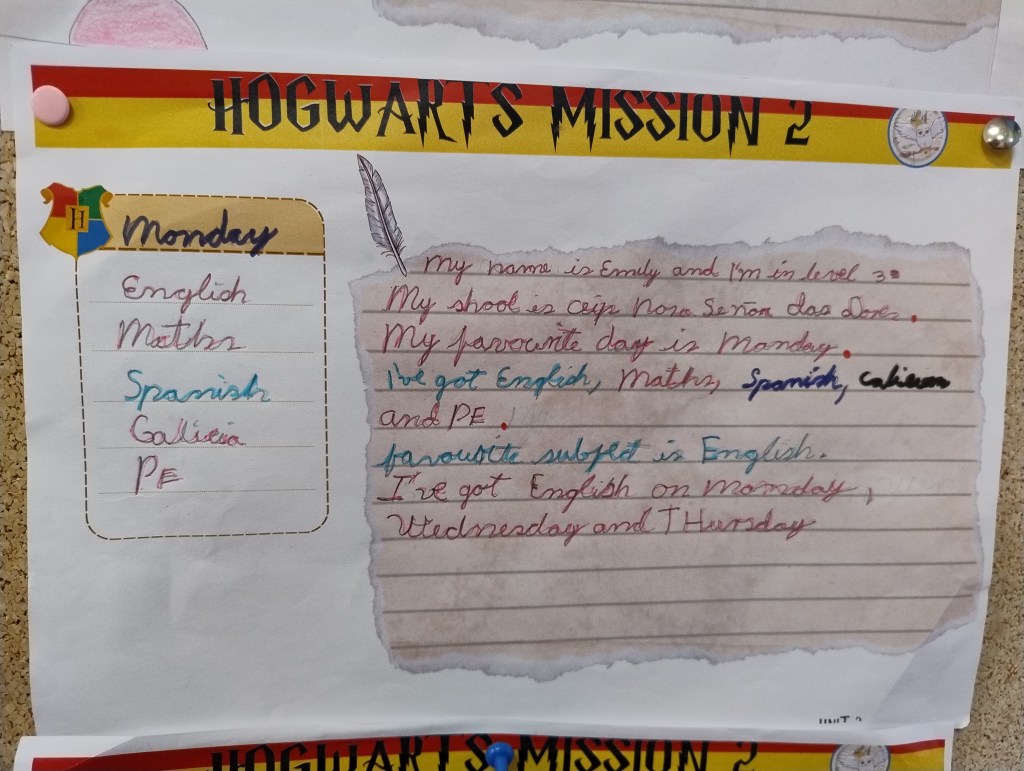 HOGWARTS MISSION 2
H
Monday
English
Maths
Spanish
Galicia
PE
My name is Emily and I'm in level 3º
My shool is ceip Nosa Señora das Dores.
My favourite day is Monday.
I've got English, Maths, Spanish,
and PE.
favourite subject is English.
I've got English on Monday,
Wednesday and THursday
UNIT 2
HOGWARTS MISSION 2